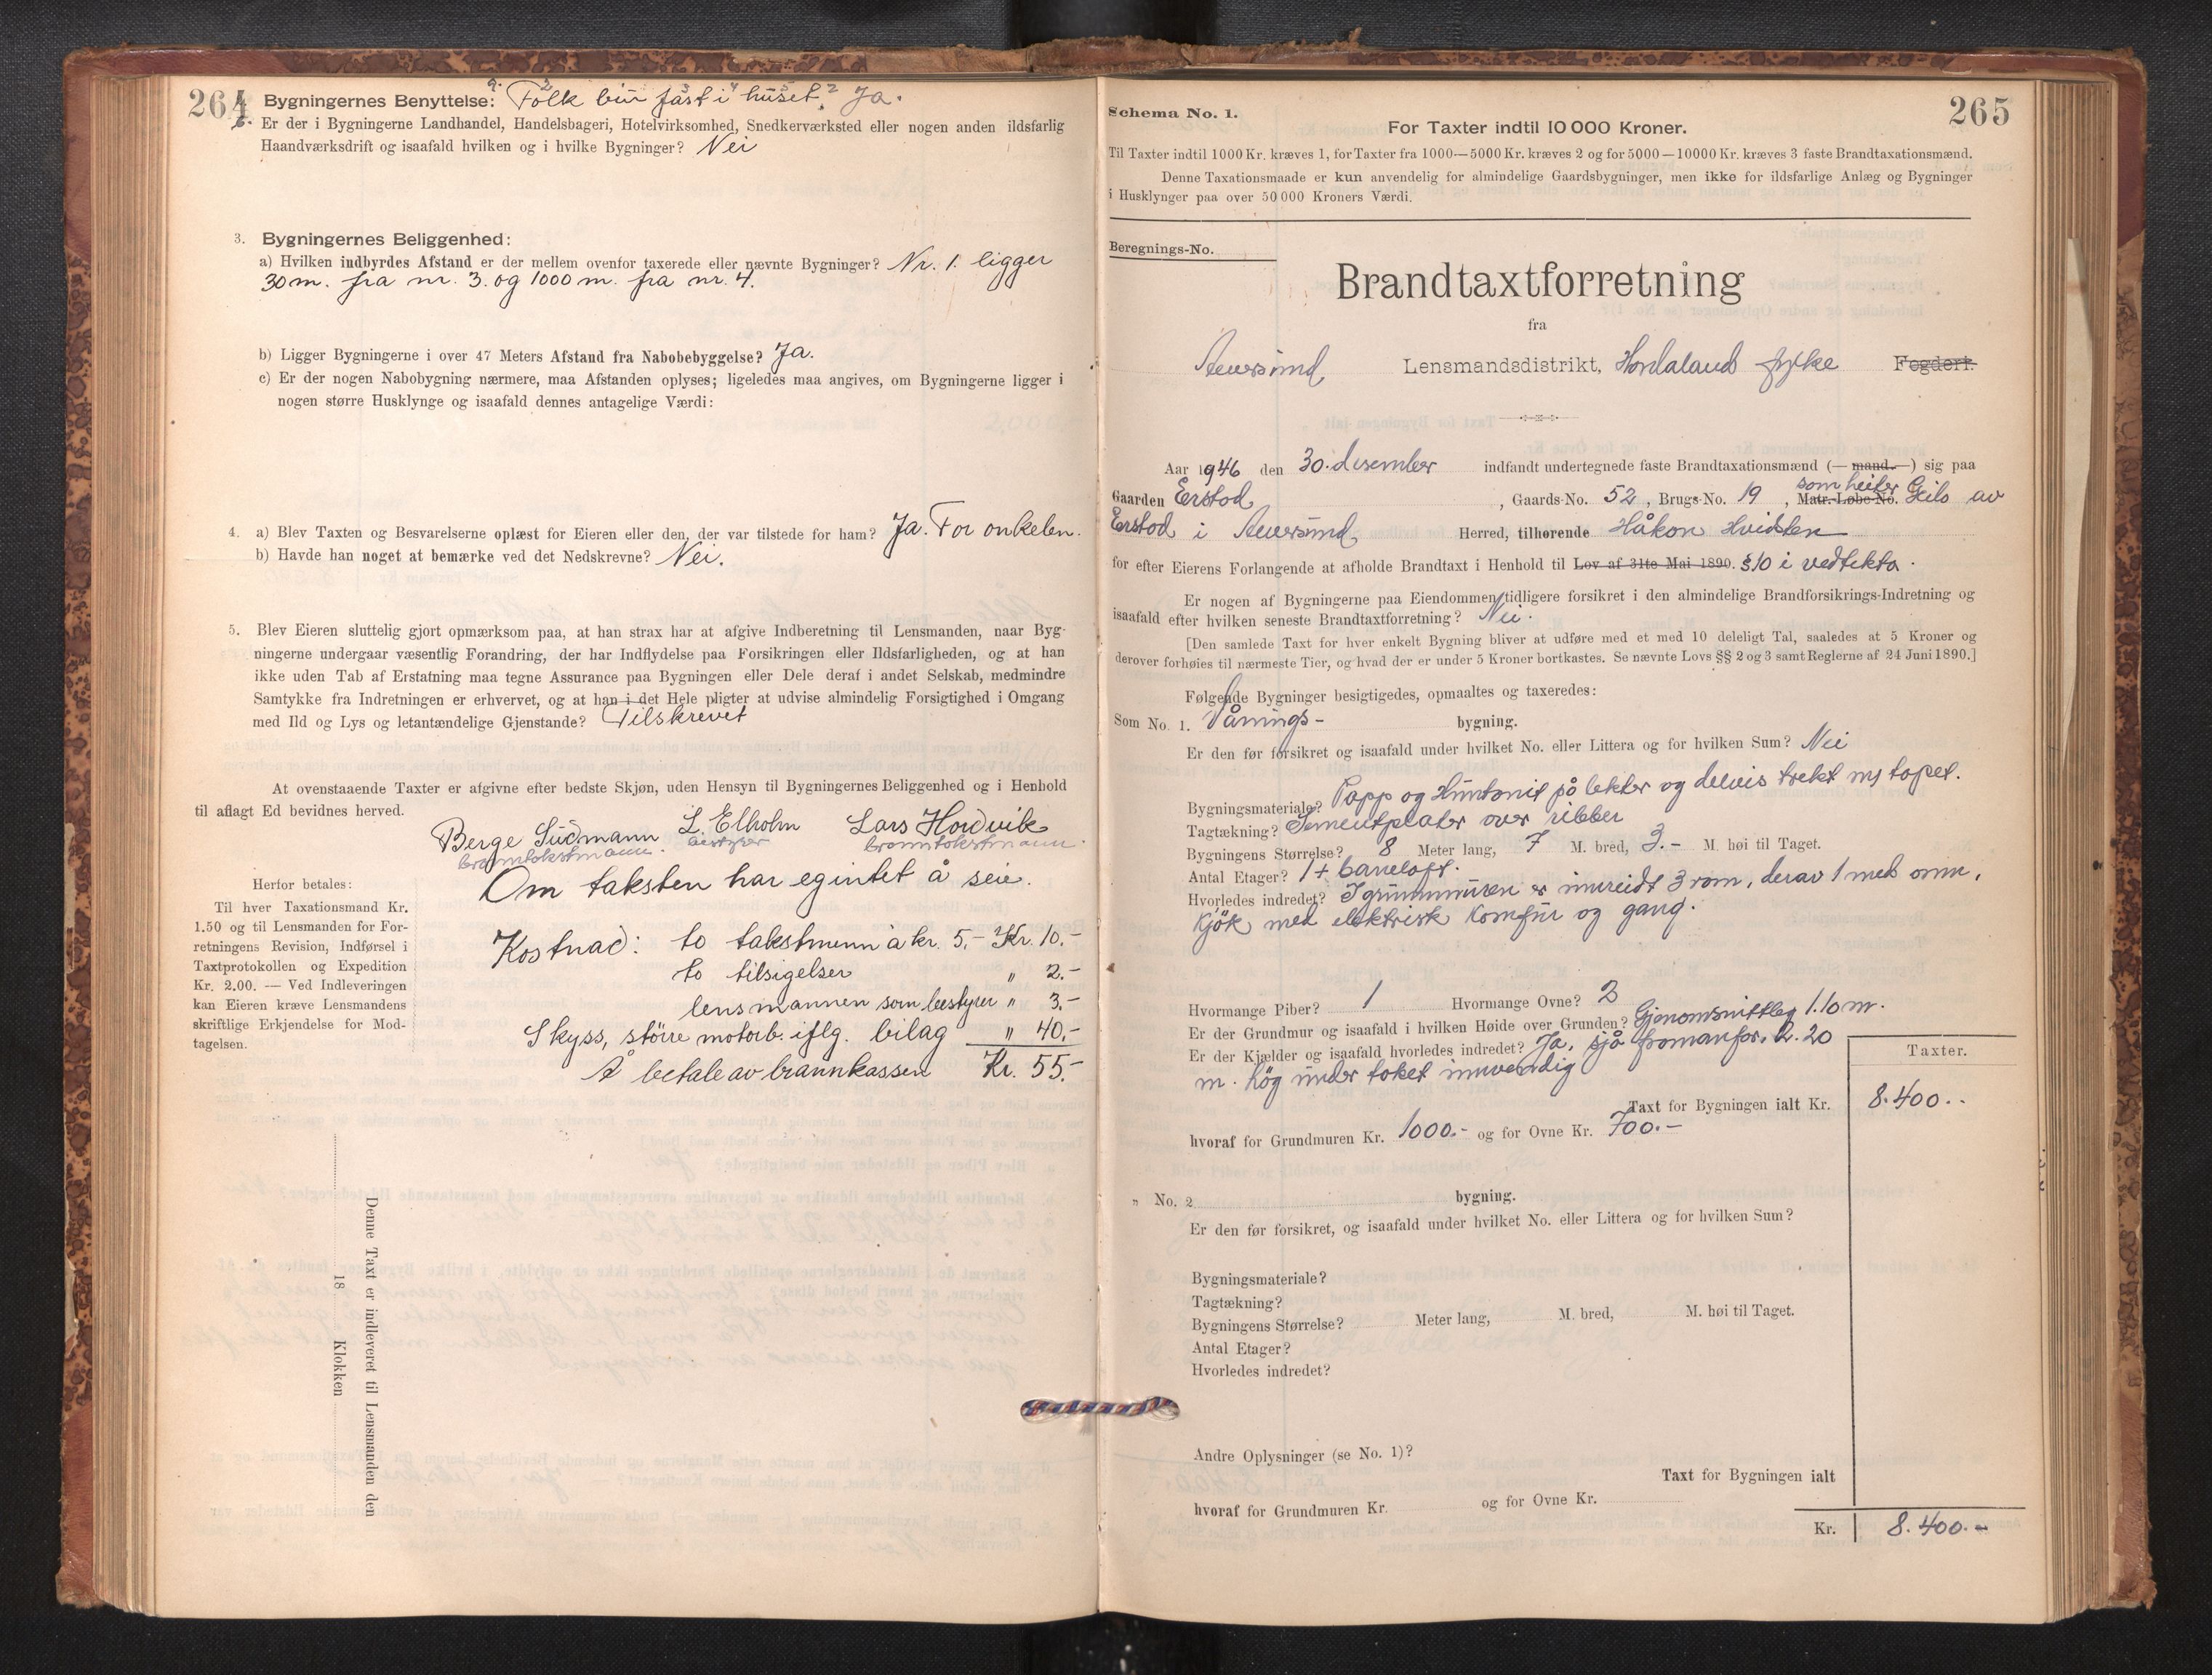 264
Bygningernes Benyttelse: Folk bur fast i huset? Ja.
Er der i Bygningerne Landhandel, Handelsbageri, Hotelvirksomhed, Snedkerværksted eller nogen anden ildsfarlig
Haandværksdrift og isaafald hvilken og i hvilke Bygninger? Nei
3. Bygningernes Beliggenhed:
a) Hvilken indbyrdes Afstand er der mellem ovenfor taxerede eller nævnte Bygninger? Nr. 1. ligger
30 m. fra nr. 3. og 1000 m. fra nr. 4.
b) Ligger Bygningerne i over 47 Meters Afstand fra Nabobebyggelse? Ja.
c) Er der nogen Nabobygning nærmere, maa Afstanden oplyses; ligeledes maa angives, om Bygningerne ligger i
nogen større Husklynge og isaafald dennes antagelige Værdi:
4. a) Blev Taxten og Besvarelserne oplæst for Eieren eller den, der var tilstede for ham? Ja. For onkelen.
b) Havde han noget at bemærke ved det Nedskrevne? Nei.
5. Blev Eieren sluttelig gjort opmærksom paa, at han strax har at afgive Indberetning til Lensmanden, naar Byg-
ningerne undergaar væsentlig Forandring, der har Indflydelse paa Forsikringen eller Ildsfarligheden, og at han
ikke uden Tab af Erstatning maa tegne Assurance paa Bygningen eller Dele deraf i andet Selskab, medmindre
Samtykke fra Indretningen er erhvervet, og at han i det Hele pligter at udvise almindelig Forsigtighed i Omgang
med Ild og Lys og letantændelige Gjenstande? Tilskrevet
At ovenstaaende Taxter er afgivne efter bedste Skjøn, uden Hensyn til Bygningernes Beliggenhed og i Henhold
til aflagt Ed bevidnes herved.
Berge Sudmann L. Elholm Lars Hordvik
branntakstmann. bestyrer branntakstmann.
Om taksten har eg intet å seie.
Kostnad: to takstmenn à kr. 5,- Kr. 10.-
to tilsigelser " 2.-
lensmannen som bestyrer " 3.-
Skyss, större motorb. iflg. bilag " 40.-
Å betale av brannkassen Kr. 55.-
Herfor betales:
Til hver Taxationsmand Kr.
1.50 og til Lensmanden for For-
retningens Revision, Indførsel i
Taxtprotokollen og Expedition
Kr. 2.00. — Ved Indleveringen
kan Eieren kræve Lensmandens
skriftlige Erkjendelse for Mod-
tagelsen.
Denne Taxt er indleveret til Lensmanden den
18 Klokken
265
Schema No. 1.
For Taxter indtil 10 000 Kroner.
Til Taxter indtil 1000 Kr. kræves 1, for Taxter fra 1000—5000 Kr. kræves 2 og for 5000—10000 Kr. kræves 3 faste Brandtaxationsmænd.
Denne Taxationsmaade er kun anvendelig for almindelige Gaardsbygninger, men ikke for ildsfarlige Anlæg og Bygninger
i Husklynger paa over 50 000 Kroners Værdi.
Beregnings-No.
Brandtaxtforretning
fra
Austevoll Lensmandsdistrikt, Hordaland fylke Fogderi.
Aar 1946 den 30. desember indfandt undertegnede faste Brandtaxationsmænd (— mand. —) sig paa
Gaarden , Gaards-No. 52, Brugs-No. 19, Matr.-Løbe-No. som heiter Geilo av
i Herred, tilhørende Håkon Hvidsten
for efter Eierens Forlangende at afholde Brandtaxt i Henhold til Lov af 31te Mai 1890. § 10 i vedtekta.
Er nogen af Bygningerne paa Eiendommen tidligere forsikret i den almindelige Brandforsikrings-Indretning og
isaafald efter hvilken seneste Brandtaxtforretning? Nei.
[Den samlede Taxt for hver enkelt Bygning bliver at udføre med et med 10 deleligt Tal, saaledes at 5 Kroner og
derover forhøies til nærmeste Tier, og hvad der er under 5 Kroner bortkastes. Se nævnte Lovs §§ 2 og 3 samt Reglerne af 24 Juni 1890.]
Følgende Bygninger besigtigedes, opmaaltes og taxeredes:
Som No. 1. Vånings- bygning.
Er den før forsikret og isaafald under hvilket No. eller Littera og for hvilken Sum? Nei
Bygningsmateriale? Papp og Huntonit på lekter og delvis trekt m/ tapet.
Tagtækning? Sementplater over ribber
Bygningens Størrelse? 8 Meter lang, 7 M. bred, 3.- M. høi til Taget.
Antal Etager? 1 + baneloft.
Hvorledes indredet? I grunnmuren er innreidt 3 rom, derav 1 med omn,
kjök med elektrisk komfur og gang.
Hvormange Piber? 1 Hvormange Ovne? 2
Er der Grundmur og isaafald i hvilken Høide over Grunden? Gjenomsnittleg 1.10 m.
Er der Kjælder og isaafald hvorledes indredet? Ja. sjå framanfor. 2.20
m. høg under taket innvendig
Taxter.
Taxt for Bygningen ialt Kr. 8.400.-
hvoraf for Grundmuren Kr. 1000.- og for Ovne Kr. 700.-
" No. 2 bygning.
Er den før forsikret, og isaafald under hvilket No. eller Littera og for hvilken Sum?
Bygningsmateriale?
Tagtækning?
Bygningens Størrelse? Meter lang, M. bred, M. høi til Taget.
Antal Etager?
Hvorledes indredet?
Andre Oplysninger (se No. 1)?
Taxt for Bygningen ialt
hvoraf for Grundmuren Kr. og for Ovne Kr.
Kr. 8.400.-